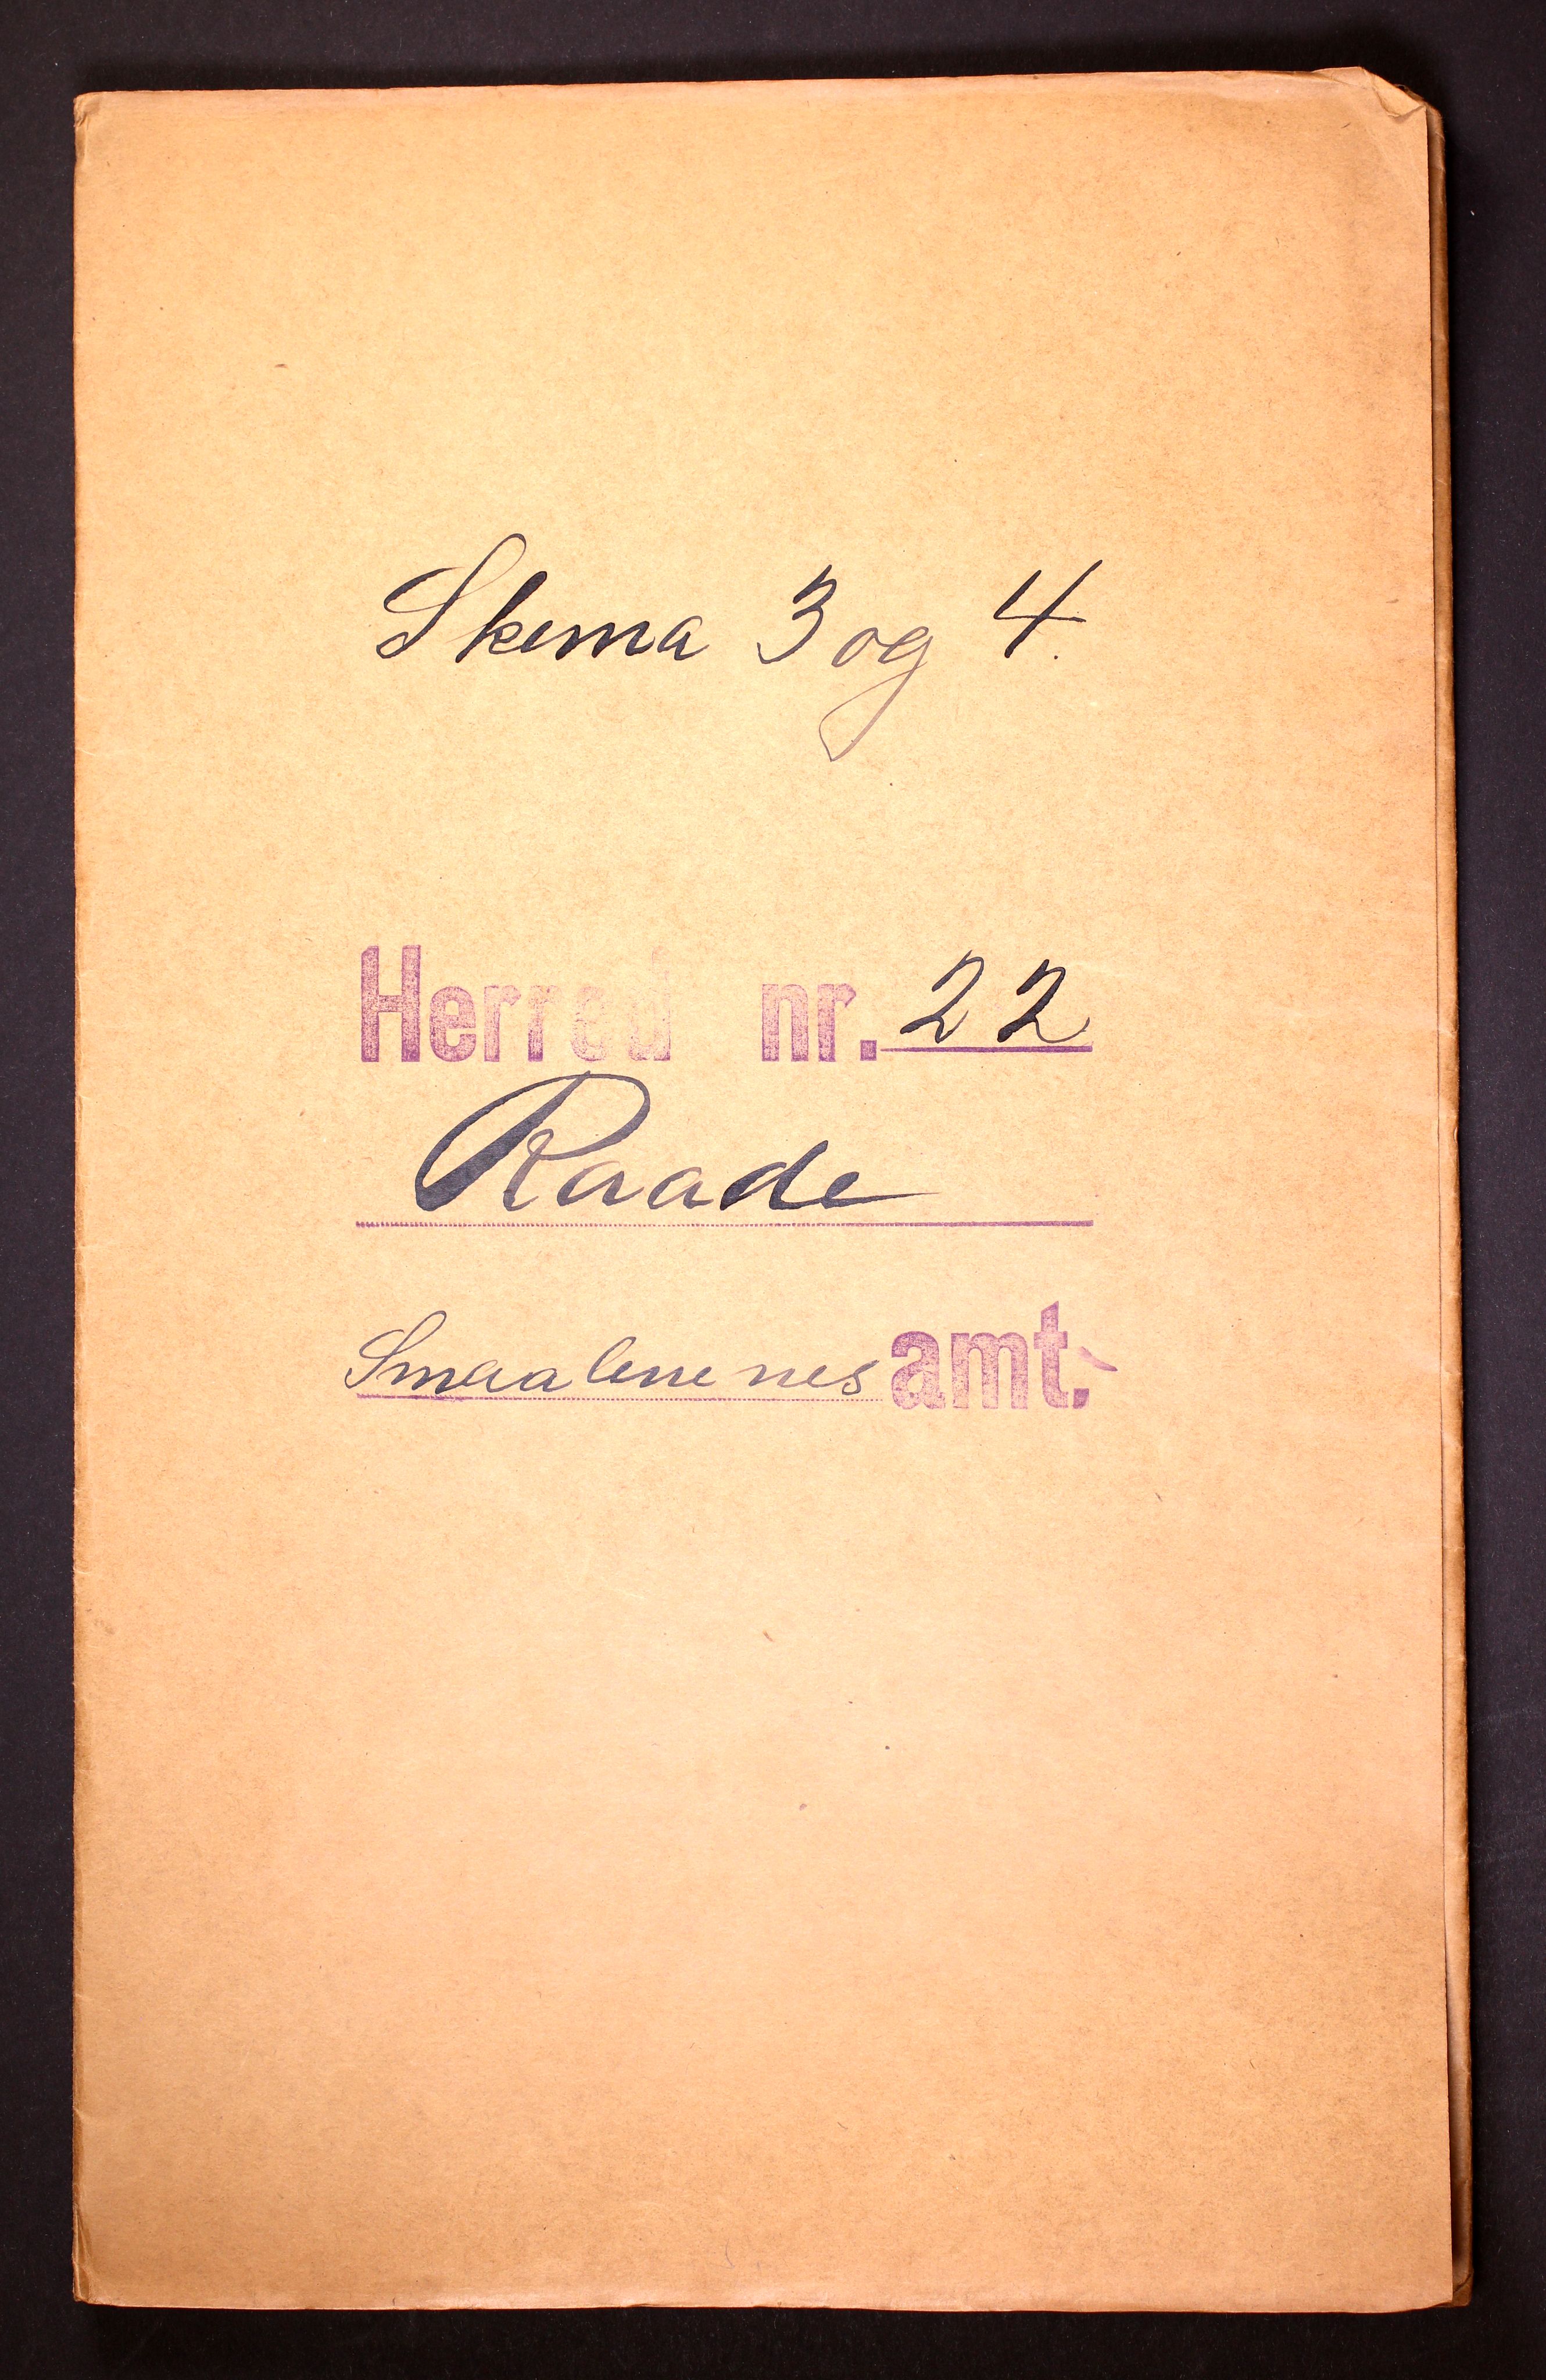 Skema 3 og 4.
Herred nr. 22
Raade
Smaalenenes amt.